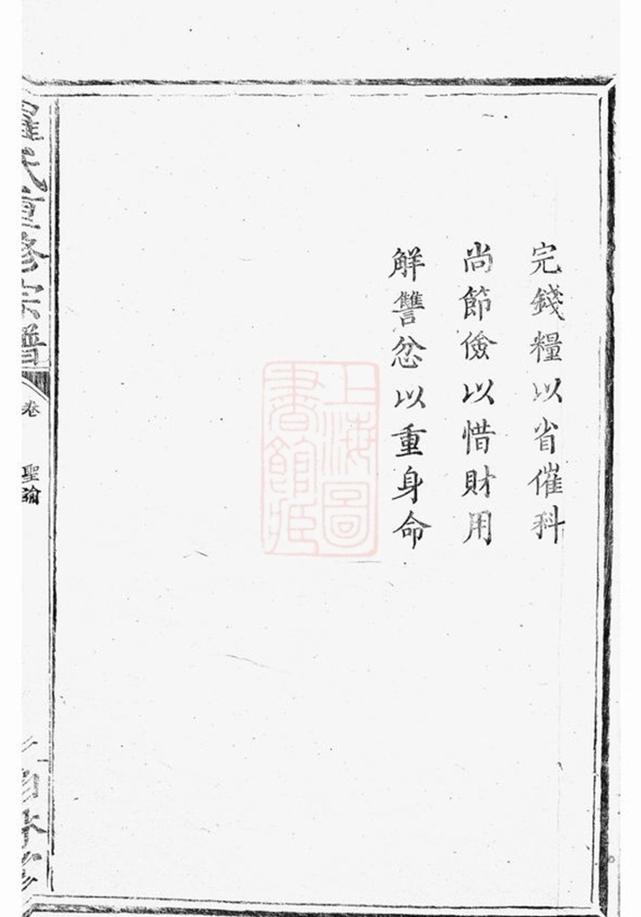 完錢糧以省催科
尚節儉以惜財用
解讐忿以重身命
羅氏重修宗譜
卷
聖諭
上海圖
書館藏